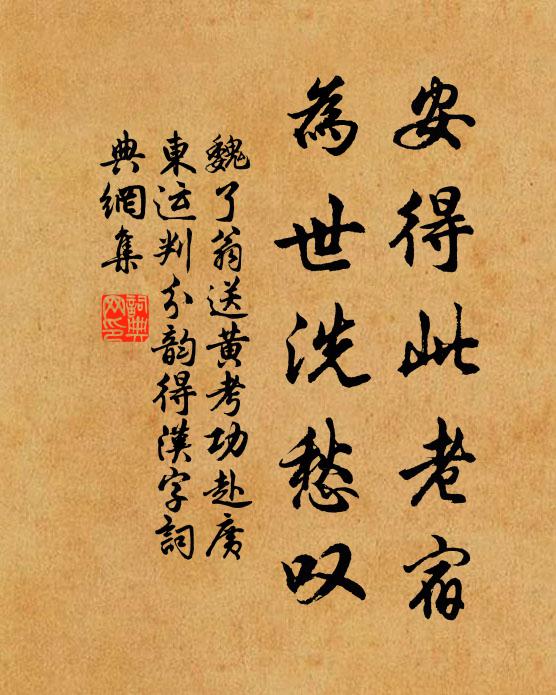 安得此老宿
為世洗愁叹
魏了翁送黄考功赴廣
東运判分韵得漢字詞
典網集
詞典網印